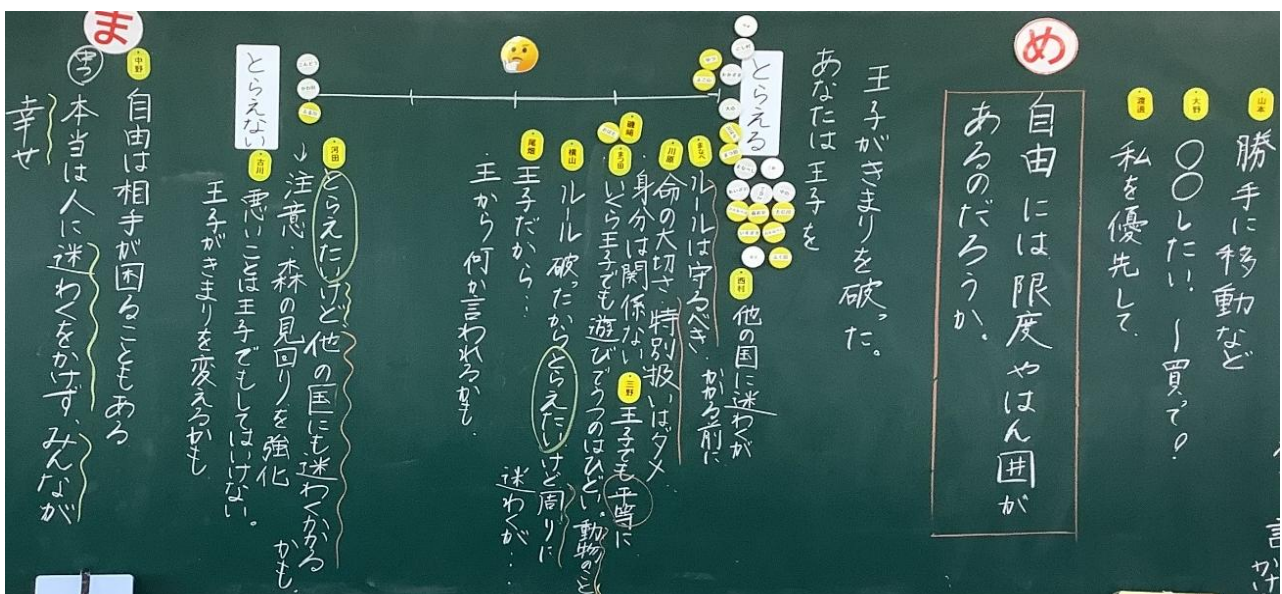 山本
勝手に移動など
大野
〇〇したい！〜買って！
渡邉
私を優先して
め
自由には限度やはん囲が
あるのだろうか。
王子がきまりを破った。
あなたは王子を
とらえる
西村
他の国に迷わくが
かかる前に
まなべ
ルールは守るべき
川原
命の大切さ・特別扱いはダメ
身分は関係ない
三野
王子でも平等に
磯崎
まつ田
いくら王子でも遊びでうつのはひどい。動物のこと
横山
ルール破ったからとらえたいけど周りに
迷わくが…
尾畑
王子だから…
王から何か言われるかも
とらえない
河田
とらえたいけど、他の国にも迷わくかかる
かも
↓注意・森の見回りを強化
古川
悪いことは王子でもしてはいけない。
王子がきまりを変えるかも
ま
中野
自由は相手が困ることもある
本当は人に迷わくをかけず、みんなが
幸せ